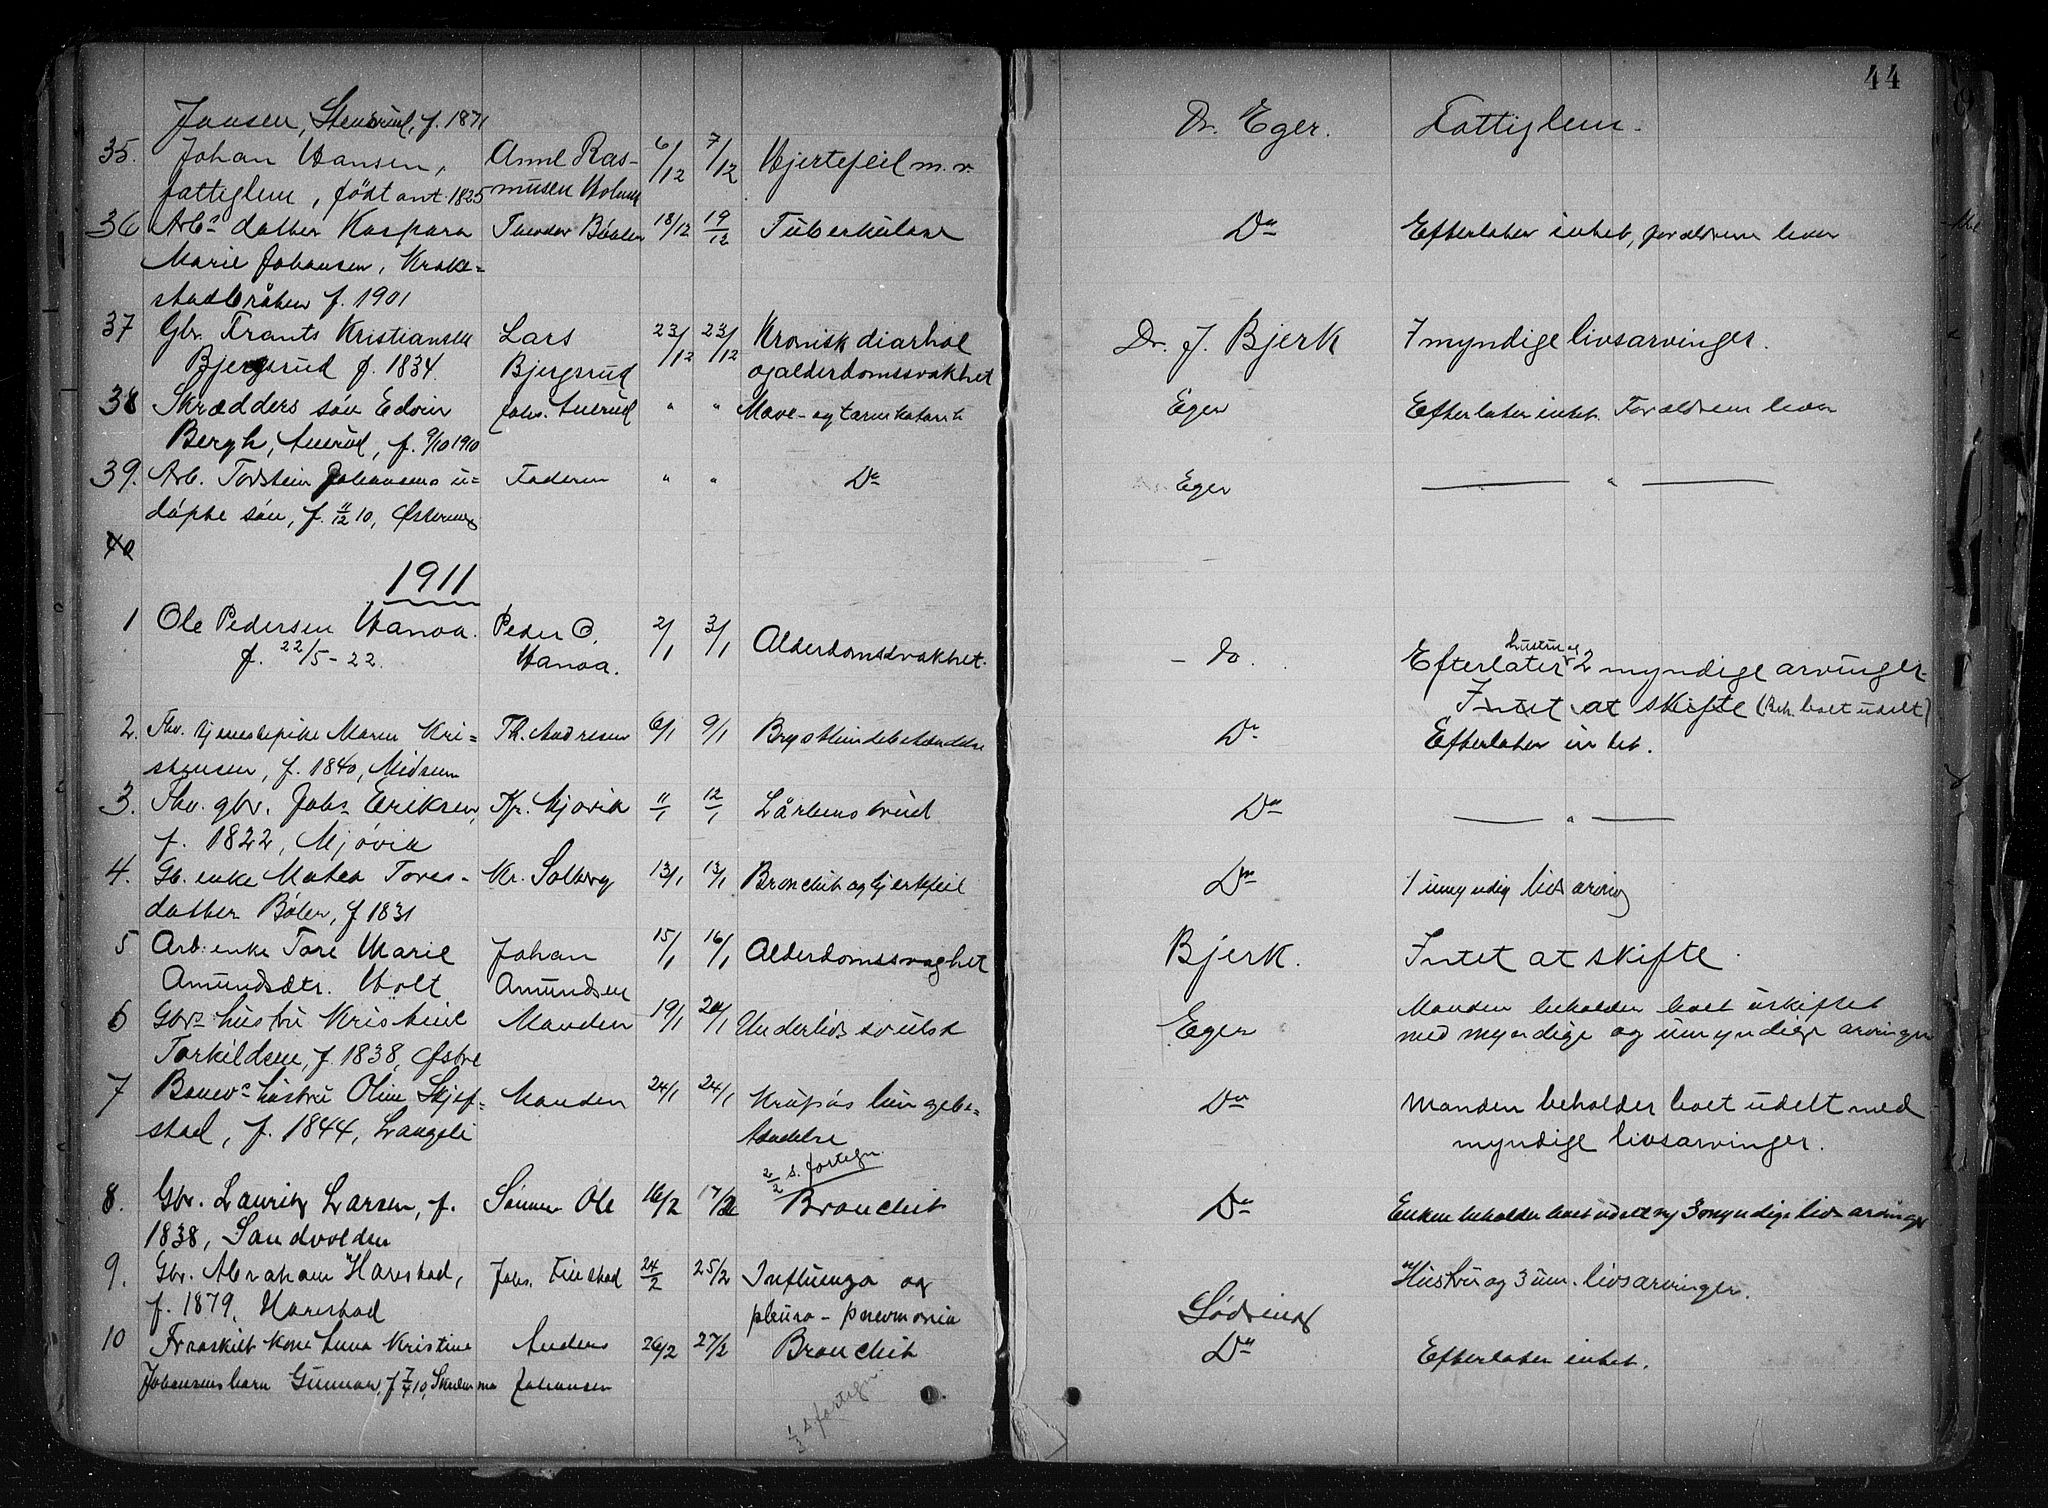 44
Jansen, Stensrud, f. 1871
35. Johan Hansen, Anne Ras- 6/12 7/12 Hjertefeil m.v. Dr. Eger. Fattiglem.
fattiglem, født omt. 1825 musen
36 Arb.s datter Kaspara Theodor Bøler 18/12 19/12 Tuberkulose Do Efterlater intet, forældrene lever
Marie Johansen, Krake-
stadbråten f. 1901
37 Gbr. Frants Kristiansen Lars 23/12 23/12 Kronisk diarhoe Dr. J. Bjerk 7 myndige livsarvinger.
Bjergsrud f. 1834. Bjergsrud og alderdomssvakhet
38 Skrædders søn Edvin Johs. Aneрud " " Mave- og tarmkatarrh Eger Efterlater intet. Forældrene lever
Bergh, f. 9/10 1910
39. Arb. Torstein Johansens u- Faderen " " Do Eger — " —
døpte søn, f. 11/12 10,
40
1911
1 Ole Pedersen Hanoa. Peder O. 2/1 3/1 Alderdomsvakhet. - do. Efterlater hustru og 2 myndige arvinger.
f. 22/5-22. Hanoa. Intet at skifte (Beh. boet udelt)
2. Fhv. tjenestepike Maren Kri- Th. Andresen 6/1 9/1 Brysthindebetændelse Do Efterlater intet.
stensen, f. 1840, Midsem
3. Fhv. gbr. Johs Eriksen, Kr. Mjøvik 11/1 12/1 Lårbensbrud Do — " —
f. 1822, Mjøvik
4. Gb. enke Mathea Tores- Kr. Solberg 13/1 13/1 Bronchit og hjertefeil Do 1 umyndig livsarving
datter Bøler, f 1831
5 Arb. enke Tore Marie Johan 15/1 16/1 Alderdomssvaghet Bjerk. Intet at skifte.
Amundsdtr. Holt Amundsen
6 Gbrs hustru Kristine Manden 19/1 20/1 Underlivssvulst Eger Manden beholder boet uskiftet
Torkildsen, f. 1838, Østre med myndige og umyndige arvinger
7 Banevs hustru Oline Skjef- Manden 24/1 24/1 Krupøs lungebe- Do Manden beholder boet udelt med
stad, f. 1844, Langeli tændelse myndige livsarvinger.
2/2 s. fortegn.
8. Gbr. Lauritz Larsen, f. Sønnen Ole 16/2 17/2 Bronchit Do Enken beholder boet udelt og 3 myndige livsarvinger
1838, Sandvolden
9. Gbr. Abraham Harestad, Johs. Finstad 24/2 25/2 Influenza og Hustru og 3 um. livsarvinger.
f. 1879, Harestad pleuro-pneumonia Lødrup
10 Fraskilt kone Anna Kristine Anders 26/2 27/2 Bronchit Do Efterlater intet.
Johansens barn Gunnar, f 7/4 10, Johansen
1/3 s fortegn